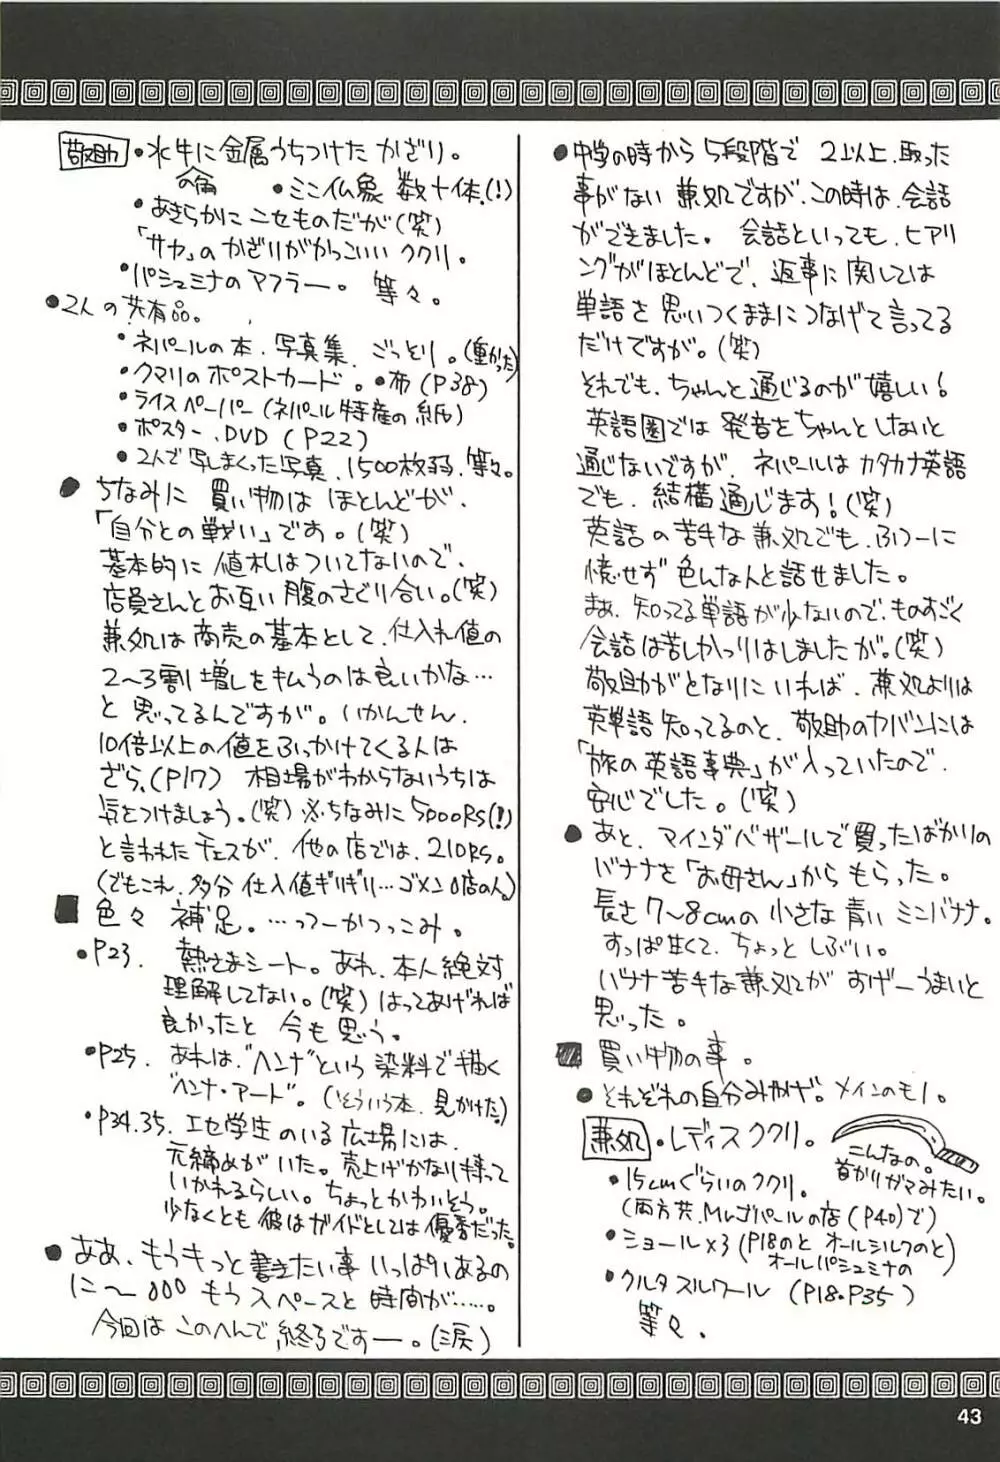 ●中学の時から5段階で 2以上、取った
事がない 兼処ですが、この時は、会話
ができました。 会話といっても、ヒアリ
ングがほとんどで、返事に関しては
単語を思いつくままにつなげて言ってる
だけですが。(笑)
それでも、ちゃんと通じるのが嬉しい!
英語圏では 発音をちゃんとしないと
通じないですが、ネパールはカタカナ英語
でも、結構通じます!(笑)
英語の苦手な兼処でも、ふつーに
憶せず色んな人と話せました。
まぁ、知ってる単語が少ないので、ものすごく
会話は苦しかったりはしましたが。(笑)
敬助がとなりにいれば、兼処よりは
英単語知ってるのと、敬助のカバンには
「旅の英語事典」が入っていたので、
安心でした。(笑)
●あと、マインダバザールで買ったばかりの
バナナを「お母さん」からもらった。
長さ7～8cmの小さな青いミンバナナ。
すっぱ甘くて、ちょっとしぶい。
バナナ苦手な兼処がおげーうまいと
思った。
■買い物の事。
●それぞれの自分みやげ。メインのモノ。
兼処・レディスククリ。
こんなの。
首かりガマみたい。
・15cmぐらいのククリ。
(両方共、Mr.ゴパールの店(P40)で)
・ショール×3(P18のとオールシルクのと)
オールパシュミナの
・クルタスルワール (P18・P35)
等々。
敬助・水牛に金属うちつけたかざり。
の角
・ミニ仏象 数十体。(!)
・あきらかにニセものだが(笑)
「サヤ」のかざりがかっこいいククリ。
・パシュミナのマフラー。 等々。
●2人の共有品。
・ネパールの本、写真集、ごっとり。(重かった)
・クマリのポストカード。・布(P38)
・ライスペーパー(ネパール特産の紙)
・ポスター、DVD (P22)
・2人で写しまくった写真、1500枚弱、等々。
●ちなみに 買い物は ほとんどが、
「自分との戦い」です。(笑)
基本的に値札はついてないので、
店員さんとお互い腹のさぐり合い。(笑)
兼処は商売の基本として、仕入れ値の
2～3割増しを払うのは良いかな…
と思ってるんですが。いかんせん、
10倍以上の値をふっかけてくる人は
ざら。(P17) 相場がわからないうちは
気をつけましょう。(笑)※ちなみに5000Rs(!)
と言われたチェスが、他の店では、210Rs。
(でもこれ、多分仕入値ギリギリ…ゴメンの店の人。)
■色々 補足。…ってーかつっこみ。
・P23. 熱さまシート。あれ、本人絶対
理解してない。(笑)はってあげれば
良かったと 今も思う。
・P25. あれは、"ヘンナ"という染料で描く
"ヘンナ・アート"。(そういう本、見かけた。)
・P34.35. エセ学生のいる広場には、
元締めがいた。売上げかなり持って
いかれるらしい。ちょっとかわいそう。
少なくとも彼はガイドとしては優秀だった。
●ああ、もうちっと書きたい事いっぱいあるの
に～ooo もうスペースと時間が……。
今回はこのへんで終了ですー。(涙)
43